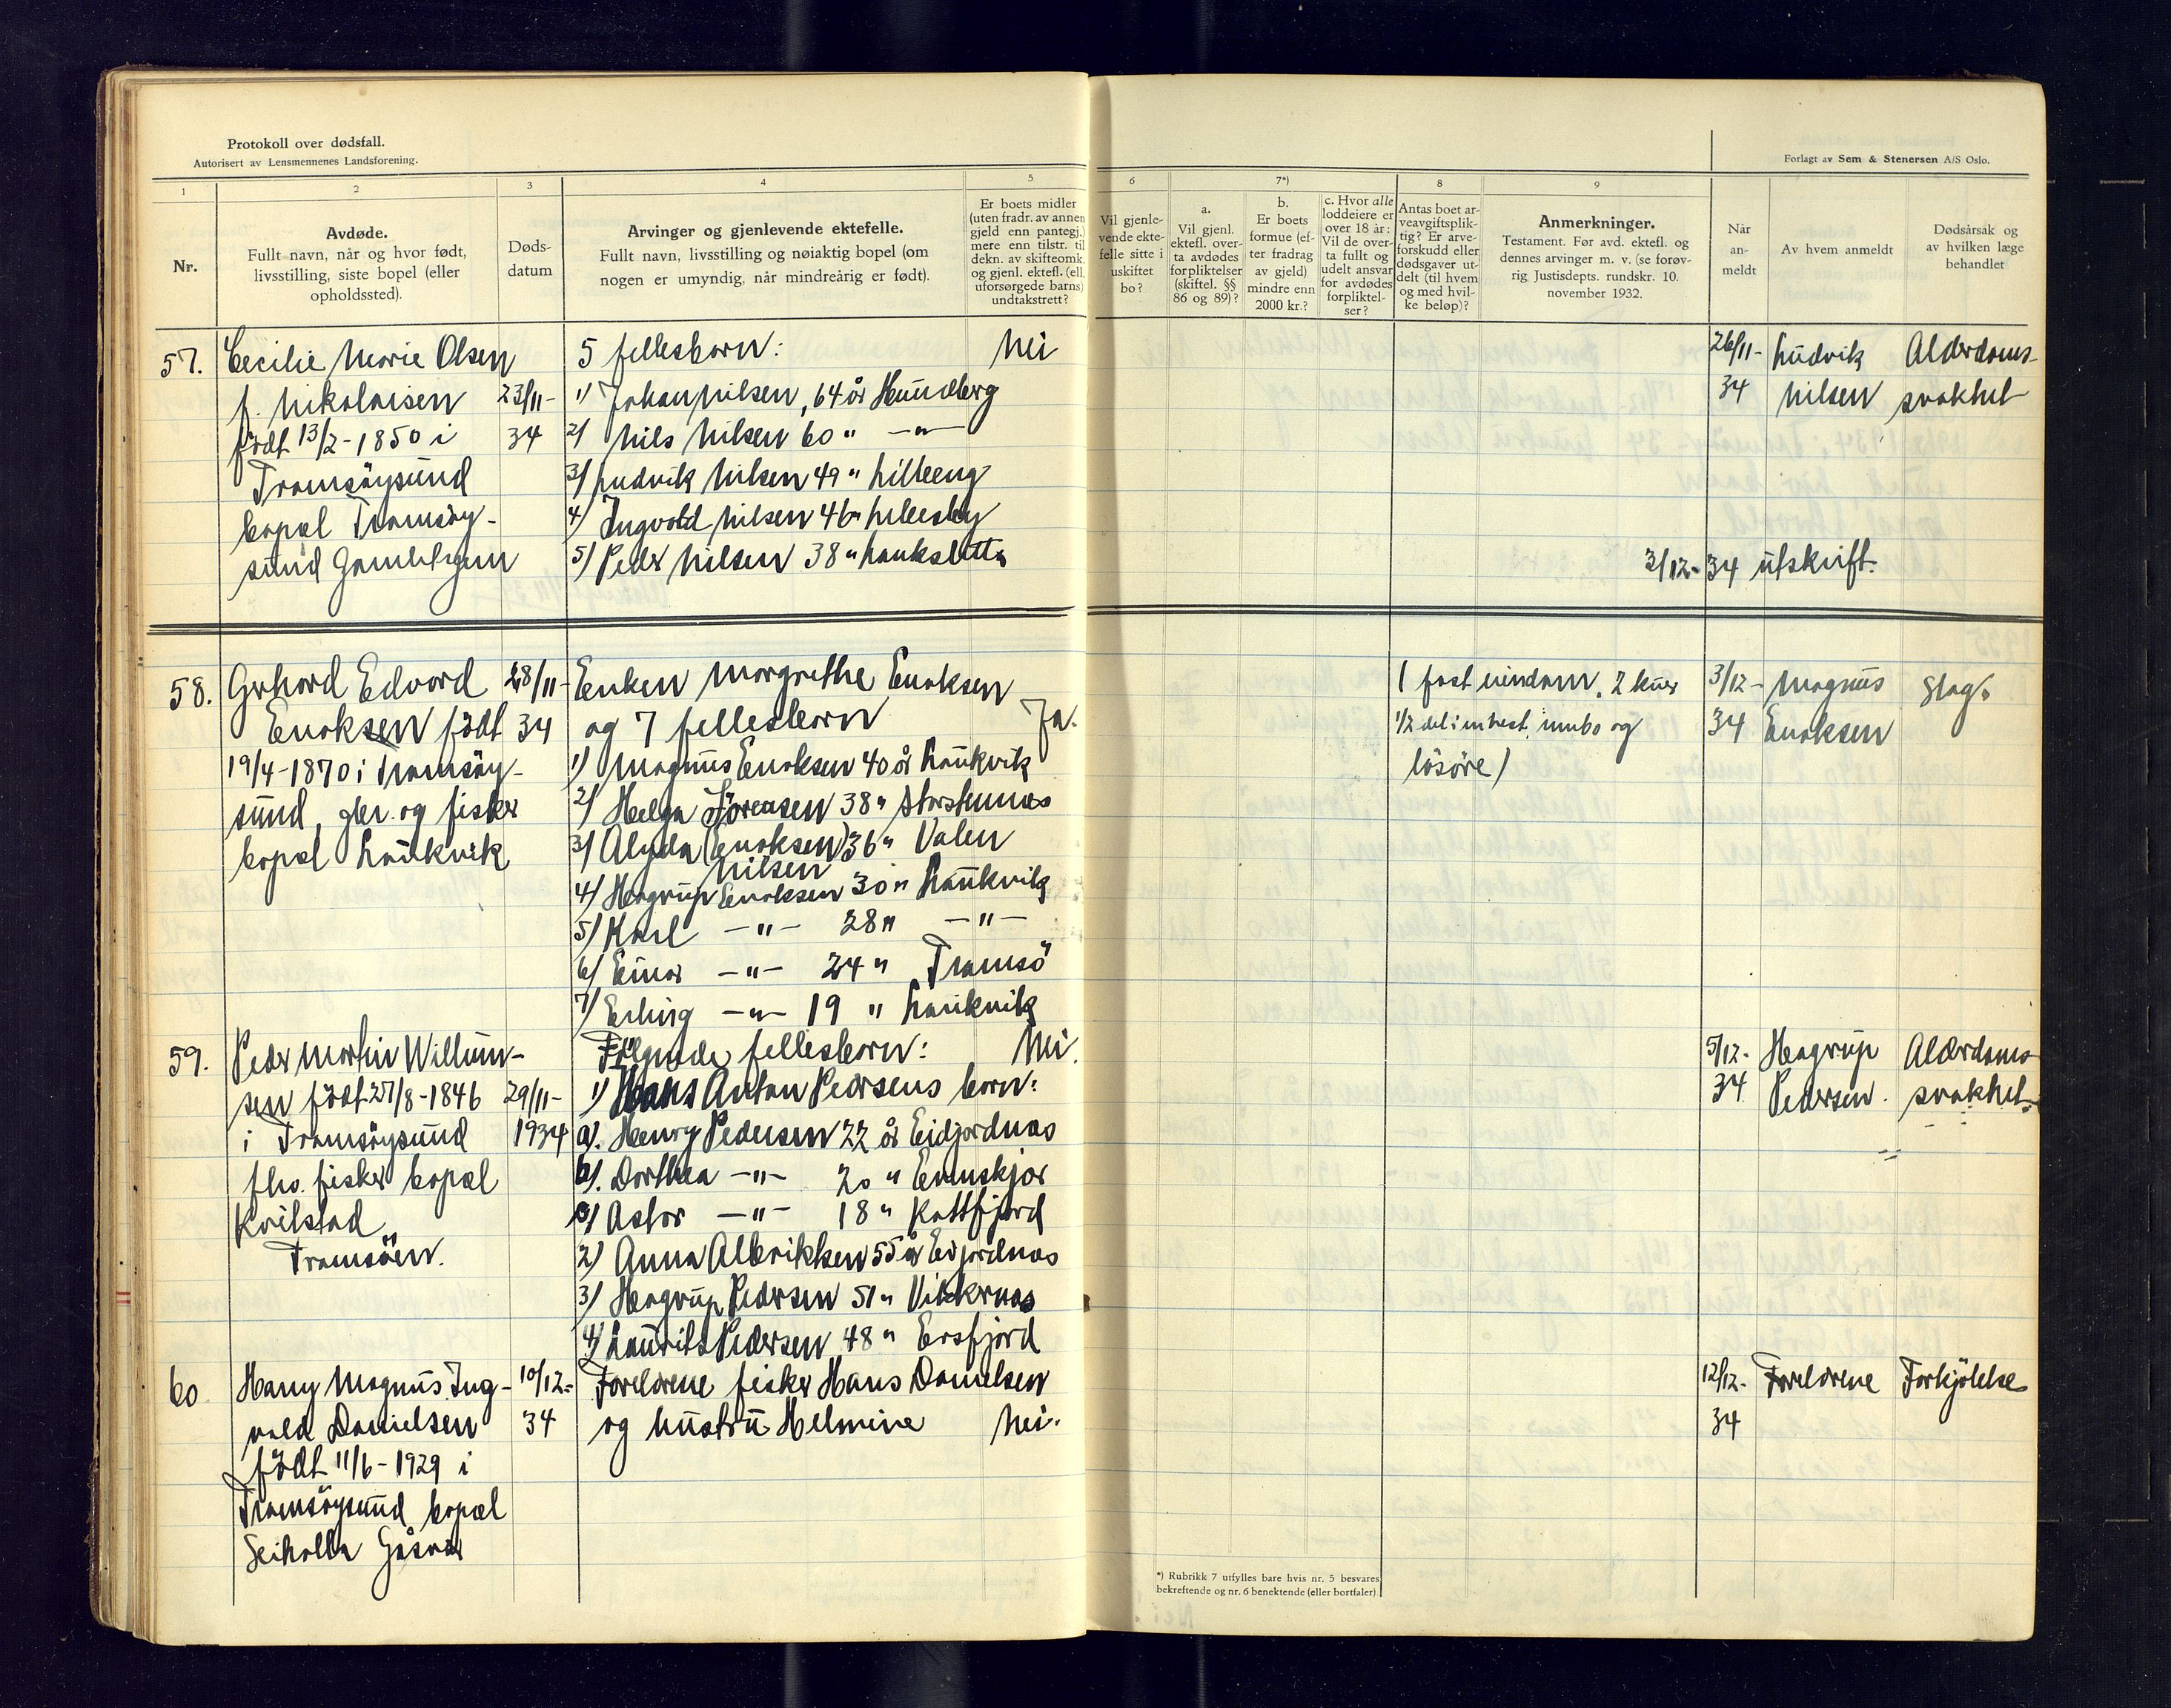 Protokoll over dødsfall.
Autorisert av Lensmennenes Landsforening.
Forlagt av Sem & Stenersen A/S Oslo.
1
2
3
4
5
6
7*)
8
9
Nr.
Avdøde.
Fullt navn, når og hvor født,
livsstilling, siste bopel (eller
opholdssted).
Døds-
datum
Arvinger og gjenlevende ektefelle.
Fullt navn, livsstilling og nøiaktig bopel (om
nogen er umyndig, når mindreårig er født).
Er boets midler
(uten fradr. av annen
gjeld enn pantegj.)
mere enn tilstr. til
dekn. av skifteomk.
og gjenl. ektefl. (ell.
uforsørgede barns)
undtakstrett?
Vil gjenle-
vende ekte-
felle sitte i
uskiftet
bo?
a.
Vil gjenl.
ektefl. over-
ta avdødes
forpliktelser
(skiftel. §§
86 og 89)?
b.
Er boets
formue (ef-
ter fradrag
av gjeld)
mindre enn
2000 kr.?
c. Hvor alle
loddeiere er
over 18 år:
Vil de over-
ta fullt og
udelt ansvar
for avdødes
forpliktel-
ser?
Antas boet ar-
veavgiftsplik-
tig? Er arve-
forskudd eller
dødsgaver ut-
delt (til hvem
og med hvil-
ke beløp)?
Anmerkninger.
Testament. Før avd. ektefl. og
dennes arvinger m. v. (se forøv-
rig Justisdepts. rundskr. 10.
november 1932.
Når
an-
meldt
Av hvem anmeldt
Dødsårsak og
av hvilken læge
behandlet
57. Cecilie Marie Olsen
f. Nikolaisen
født 13/2-1850 i
Tromsöysund
bopæl Tromsöy-
sund
23/11-
34
5 fellesbarn:
1) Johan Nilsen, 64 år Hundberg
2) Nils Nilsen 60 " —"—
3) Ludvik Nilsen 49 " Lilleeng
4) Ingvald Nilsen 46 "
5) Peder Nilsen 38 "
Nei
26/11-
34
Ludvik
Nilsen
Alderdoms-
svakhet
3/12-34 utskrift.
58. Gerhard Edvard
Enoksen født
19/4-1870 i Tromsöy-
sund, gbr. og fisker
bopæl Laukvik
28/11-
34
Enken Margrethe Enoksen
og 7 fellesbarn
1) Magnus Enoksen 40 år Laukvik
2) Helga Sörensen 38 " Storstennes
3) Alyda (Enoksen) 36 " Valen
Nilsen
4) Hagrup Enoksen 30 " Laukvik
5) Karl —"— 28 " —"—
6) Einar —"— 24 " Tromsö
7) Erling —"— 19 " Laukvik
Ja.
1 fast eiendom, 2 kuer
1/2 del i en hest, innbo og
lösöre)
3/12-
34
Magnus
Enoksen
Slag.
59. Peder Martin Willum-
sen født 27/8-1846
i Tromsöysund
fhv. fisker bopæl
Kvilstad
Tromsöen.
29/11-
1934
Fölgende fellesbarn:
1) Hans Anton Pedersens barn:
a). Henry Pedersen 22 år Eidjordnes
b). Dorthea —"— 20 " Enenskjær
c) Astor —"— 18 " Kattfjord
2) Anna Albriktsen 55 år Eidjordnes
3) Hagrup Pedersen 51 " Vikkernes
4) Laurits Pedersen 48 " Ersfjord
Nei.
5/12-
34
Hagrup
Pedersen.
Alderdoms-
svakhet.
60. Harry Magnus Ing-
vald Danielsen
født 11/6-1929 i
Tromsöysund bopæl
Seiholla Gåsvær
10/12-
34
Foreldrene fisker Hans Danielsen
og hustru Helmine
Nei.
12/12-
34
Foreldrene
Forkjölelse
*) Rubrikk 7 utfylles bare hvis nr. 5 besvares
bekreftende og nr. 6 benektende (eller bortfaler).